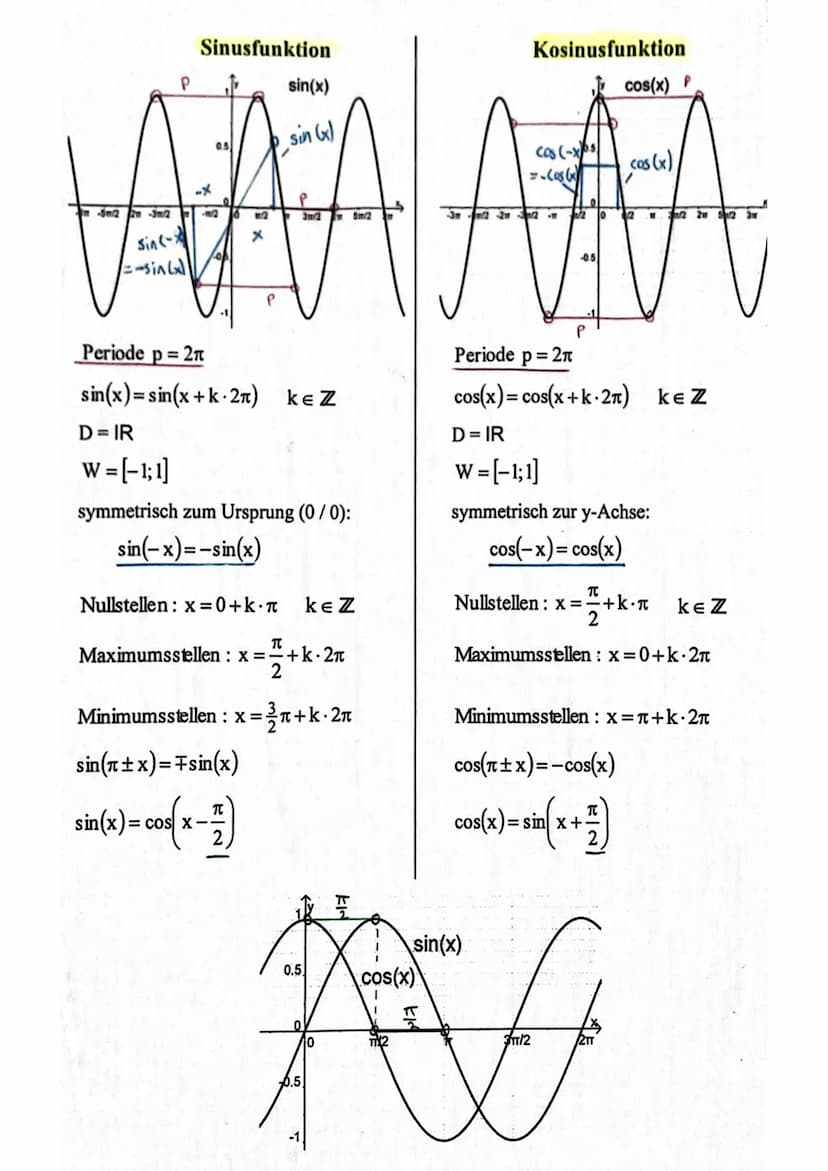 Sinusfunktion
P
y
sin(x)
1
0.5
sin(x)
-x
P
0
-3π -5π/2 -2π -3π/2 -π -π/2 0 π/2 3π/2 5π/2
x
sin(-x)
=-sin(x)
x
P
-1
Periode p = 2π
sin(x) = sin(x + k · 2π) k ∈ ℤ
D = IR
W = [-1; 1]
symmetrisch zum Ursprung (0 / 0):
sin(-x) = -sin(x)
Nullstellen : x = 0 + k · π k ∈ ℤ
Maximumsstellen : x = π/2 + k · 2π
Minimumsstellen : x = 3/2 π + k · 2π
sin(π ± x) = ∓sin(x)
sin(x) = cos(x - π/2)
Kosinusfunktion
y
cos(x)
P
1
0.5
cos(-x)
=-cos(x)
cos(x)
0
-3π -5π/2 -2π -3π/2 -π -π/2 0 π/2 π 3π/2 2π 5π/2 3π
-0.5
-1
P
Periode p = 2π
cos(x) = cos(x + k · 2π) k ∈ ℤ
D = IR
W = [-1; 1]
symmetrisch zur y-Achse:
cos(-x) = cos(x)
Nullstellen : x = π/2 + k · π k ∈ ℤ
Maximumsstellen : x = 0 + k · 2π
Minimumsstellen : x = π + k · 2π
cos(π ± x) = -cos(x)
cos(x) = sin(x + π/2)
y
1
π/2
sin(x)
0.5
cos(x)
π/2
0
x
0 π/2 π 3π/2 2π
-0.5
-1